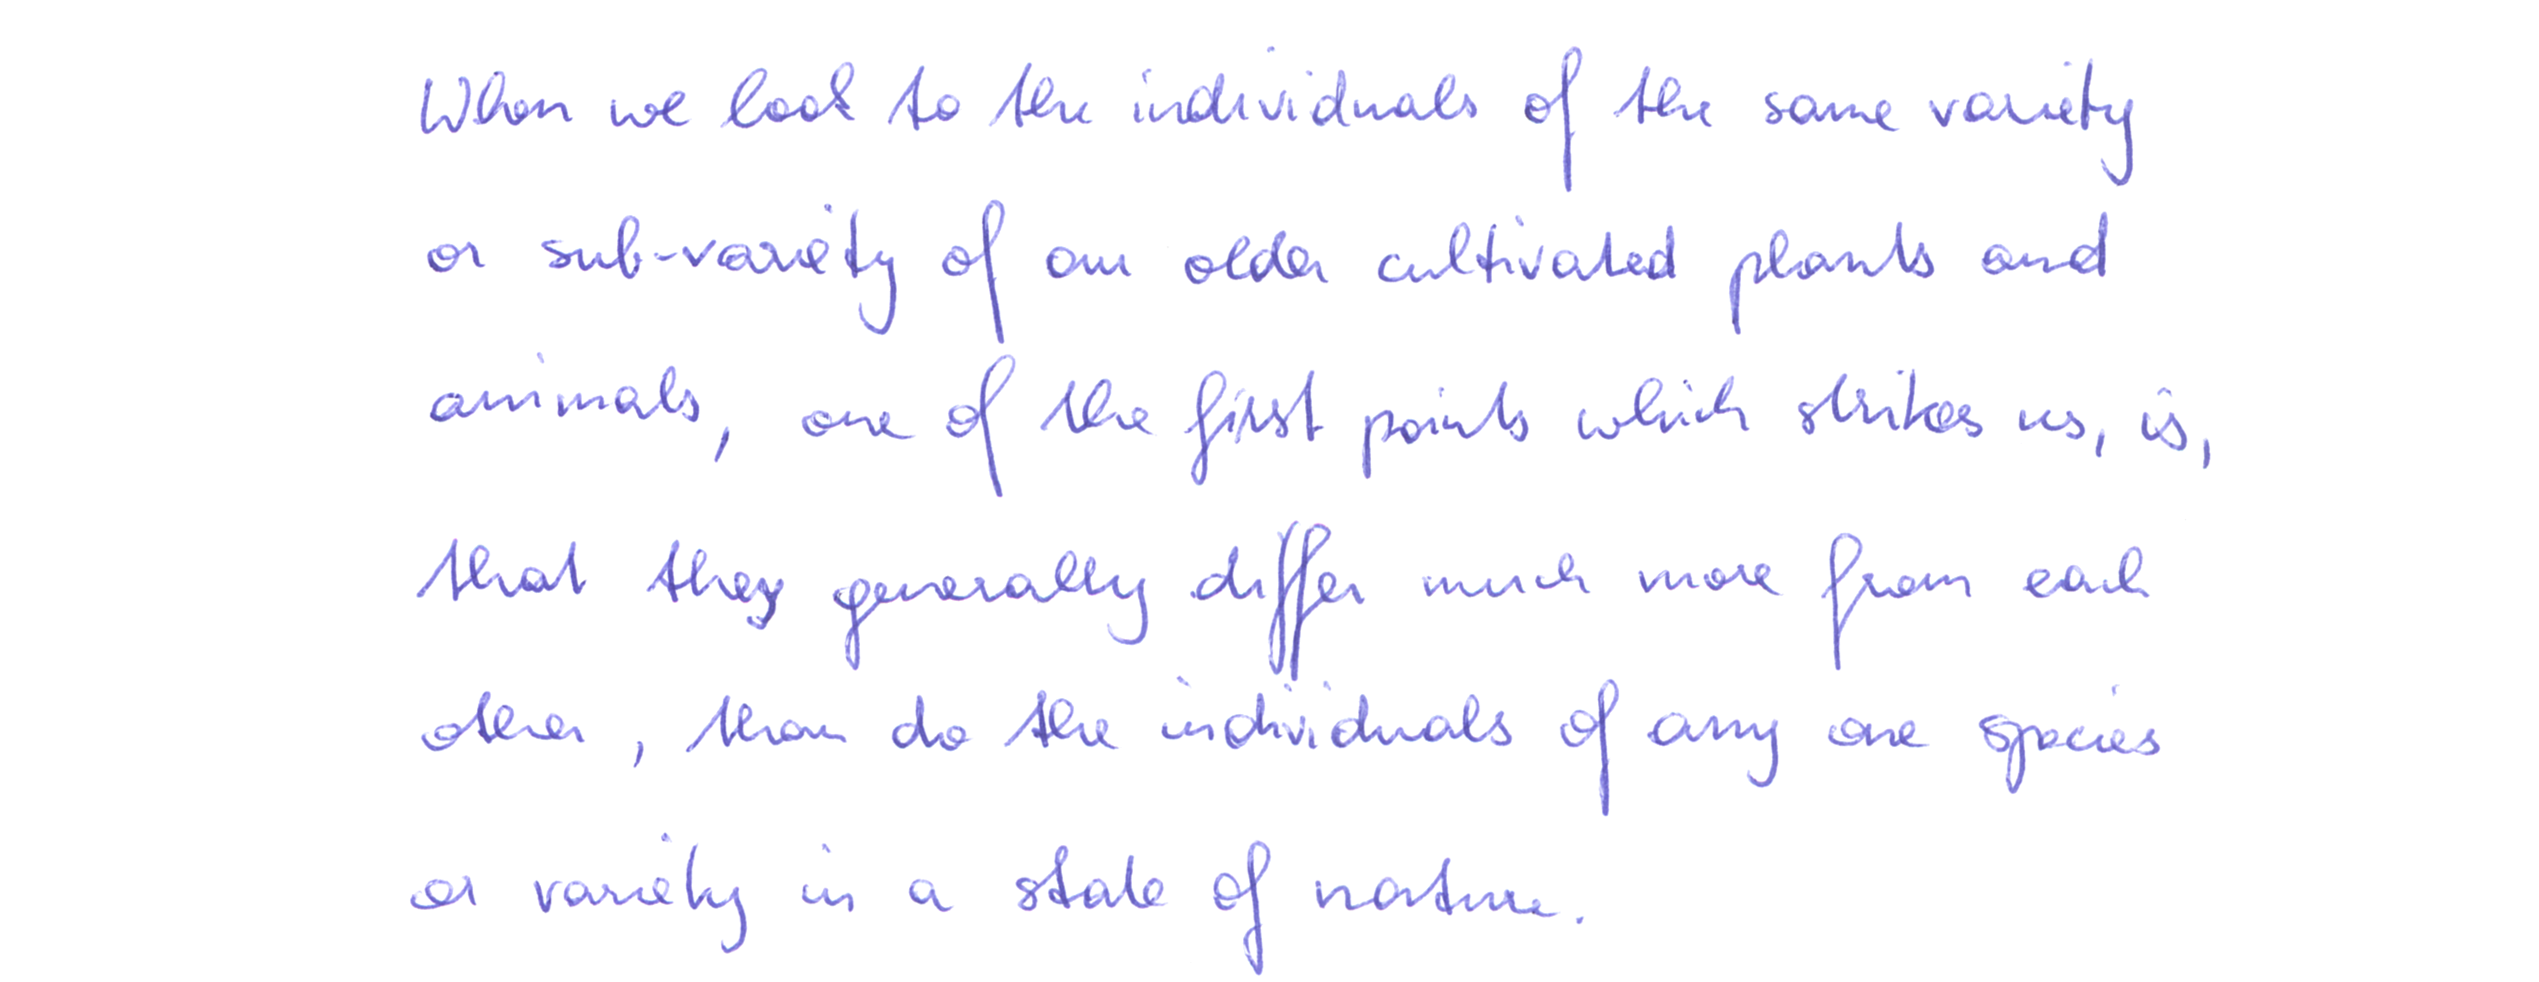 When we look to the individuals of the same variety
or sub-variety of our older cultivated plants and
animals, one of the first points which strikes us, is,
that they generally differ much more from each
other, than do the individuals of any one species
or variety in a state of nature.